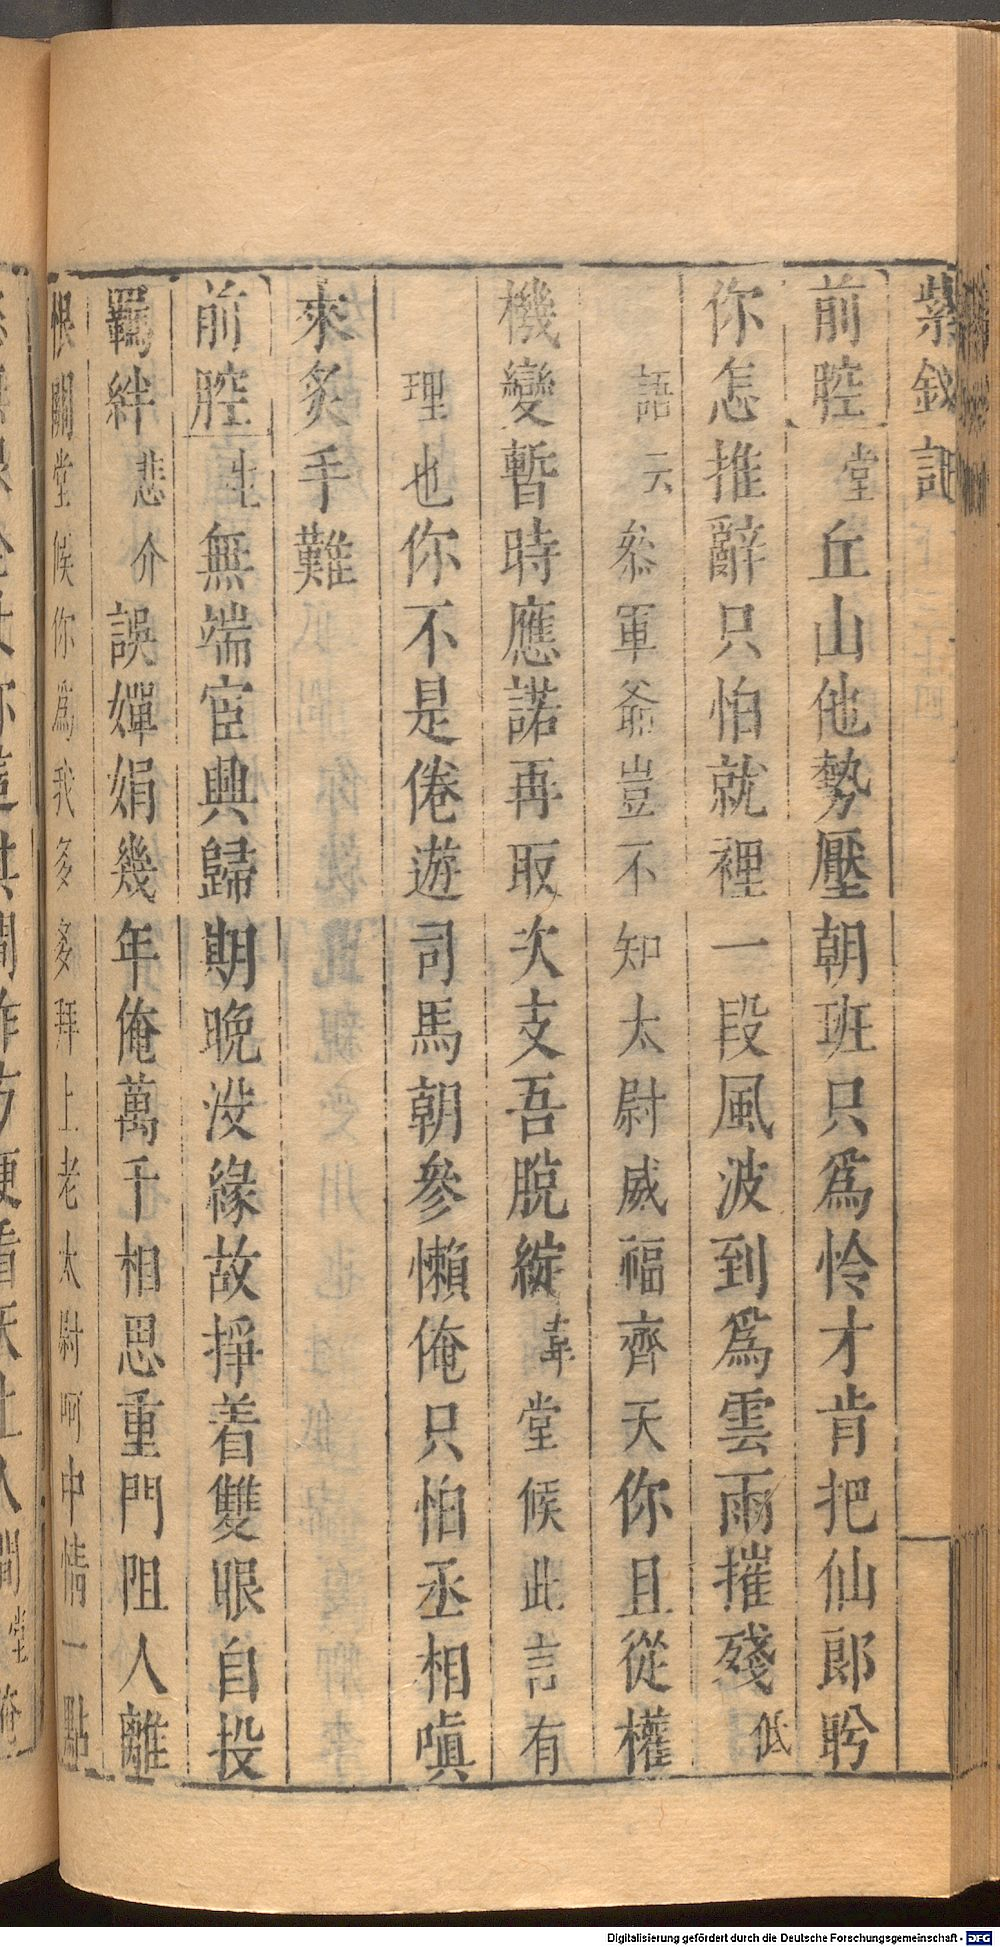 紫釵記
前腔堂丘山他勢壓朝班只爲怜才肯把仙郎盻
你怎推辭只怕就裡一段風波到爲雲雨摧殘低
語云叅軍爺豈不知太尉威福齊天你且從權
機變暫時應諾再取次支吾脫綻韋堂候此言有
理也你不是倦遊司馬朝參懶俺只怕丞相嗔
來炙手難
前腔生無端宦興歸期晚没緣故掙着雙眼自投
羈絆悲介誤嬋娟幾年俺萬千相思重門阻人離
恨關堂候你爲我多多拜上老太尉呵中情一點
Digitalisierung gefördert durch die Deutsche Forschungsgemeinschaft - DFG